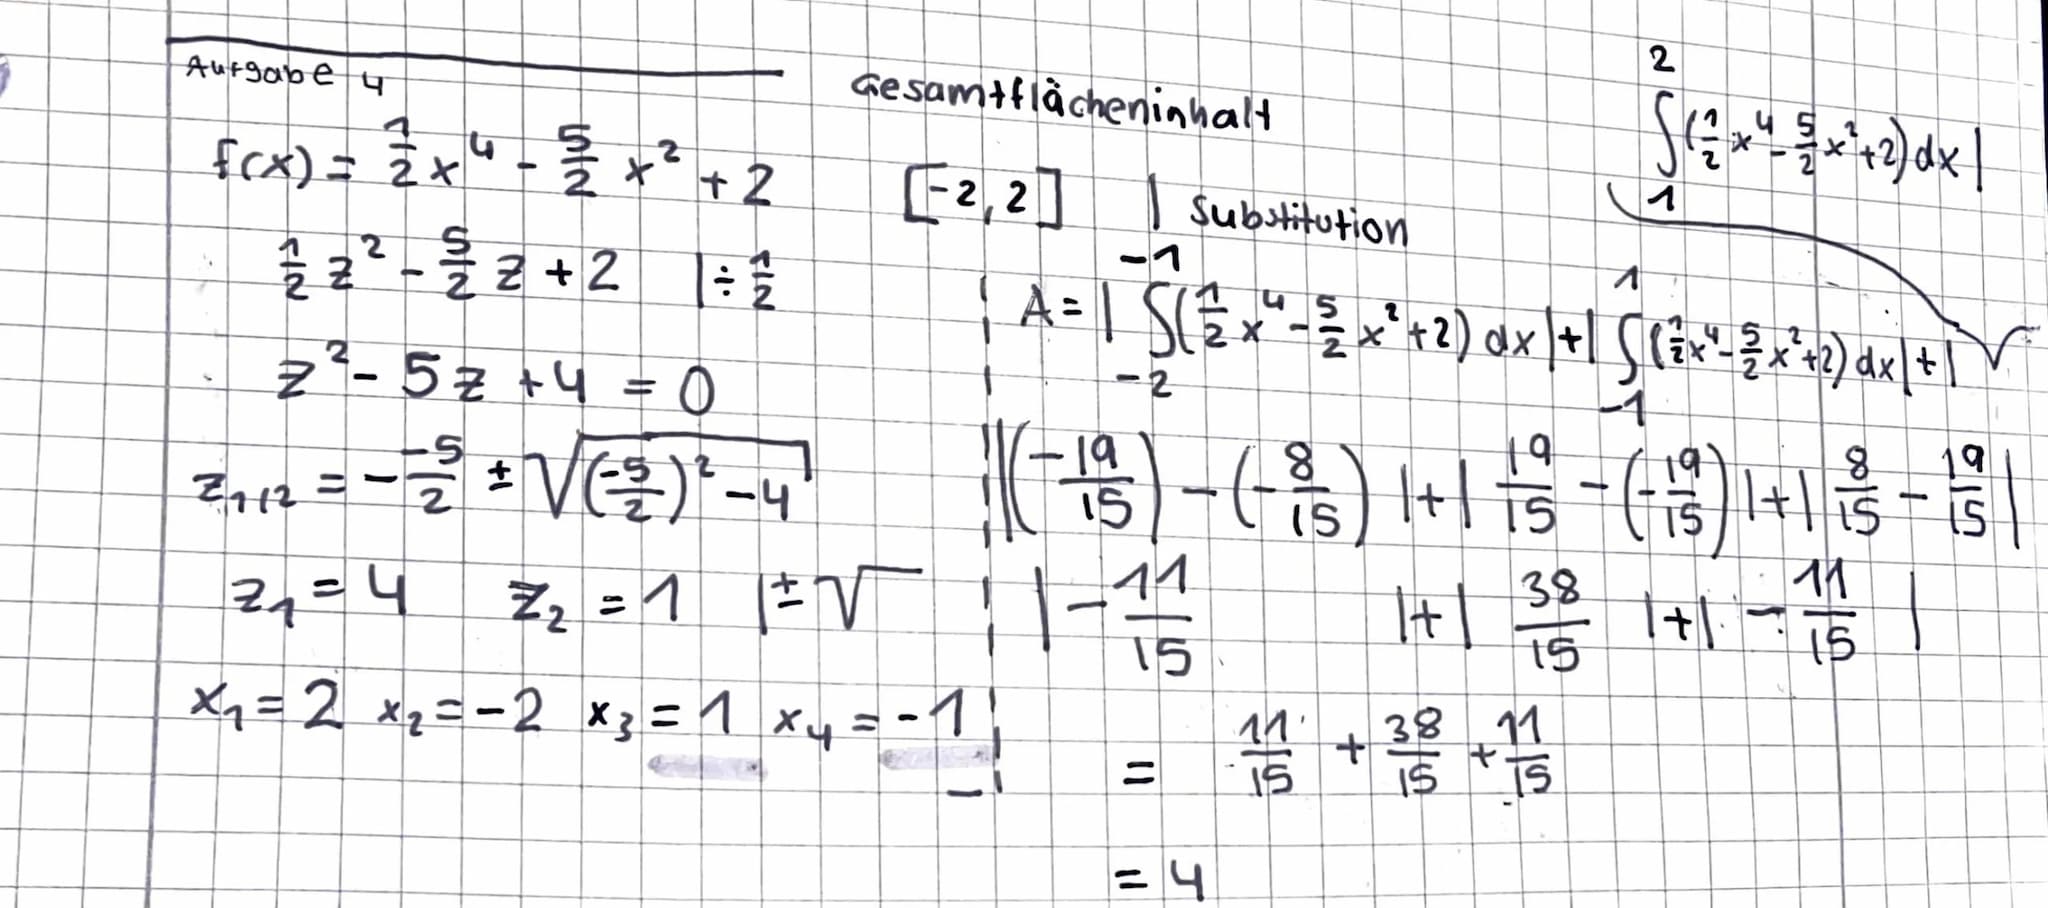 Aufgabe 4
f(x) = 1/2 x^4 - 5/2 x^2 + 2
1/2 z^2 - 5/2 z + 2 | ÷ 1/2
z^2 - 5z + 4 = 0
z_1/2 = - -5/2 ± √((-5/2)^2 - 4)
z_1 = 4 z_2 = 1 | ± √
x_1 = 2 x_2 = -2 x_3 = 1 x_4 = -1
Gesamtflächeninhalt
[-2, 2] | Substitution
A = | ∫_-2^-1 (1/2 x^4 - 5/2 x^2 + 2) dx | + | ∫_-1^1 (1/2 x^4 - 5/2 x^2 + 2) dx | + |
∫_1^2 (1/2 x^4 - 5/2 x^2 + 2) dx |
| (-19/15) - (-8/15) | + | 19/15 - (-19/15) | + | 8/15 - 19/15 |
| -11/15 | + | 38/15 | + | -11/15 |
= 11/15 + 38/15 + 11/15
= 4